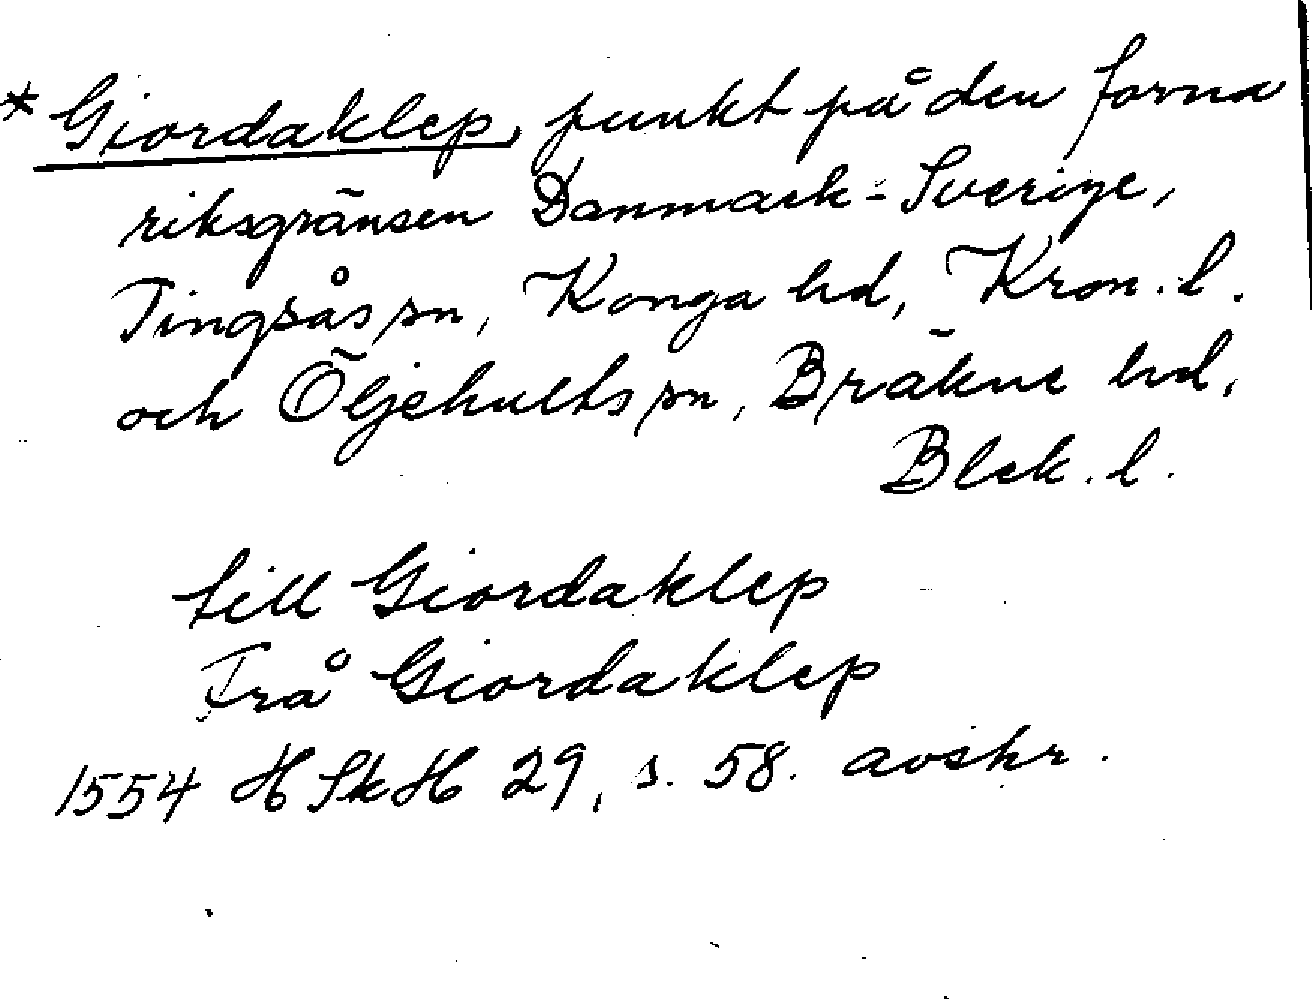 * Giordaklep, punkt på den forna
riksgränsen Danmark-Sverige,
Tingsås sn, Konga hd, Kron. l.
och Öljehults sn, Bräkne hd,
Blek. l.
till Giordaklep
Frå Giordaklep
1554 HSkH 29, s. 58. avskr.